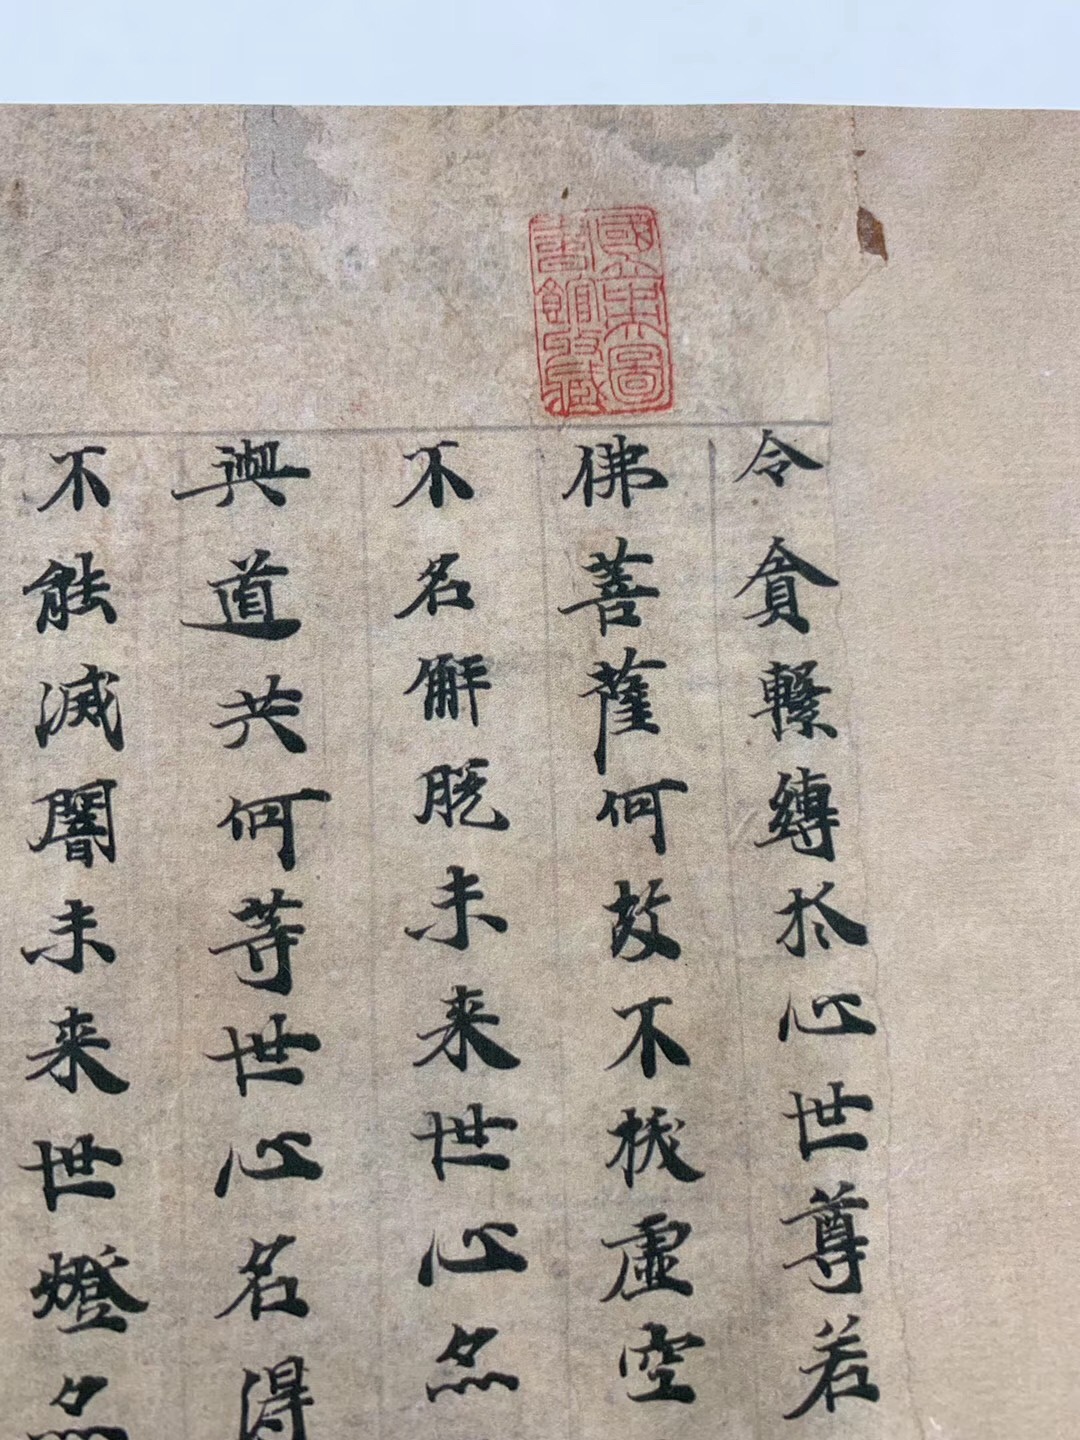 國立中央圖
書館收藏
令貪繫縛於心世尊若
佛菩薩何故不拔虛空
不名解脫未来世心無
與道共何等世心名得
不能滅闇未来世燈無